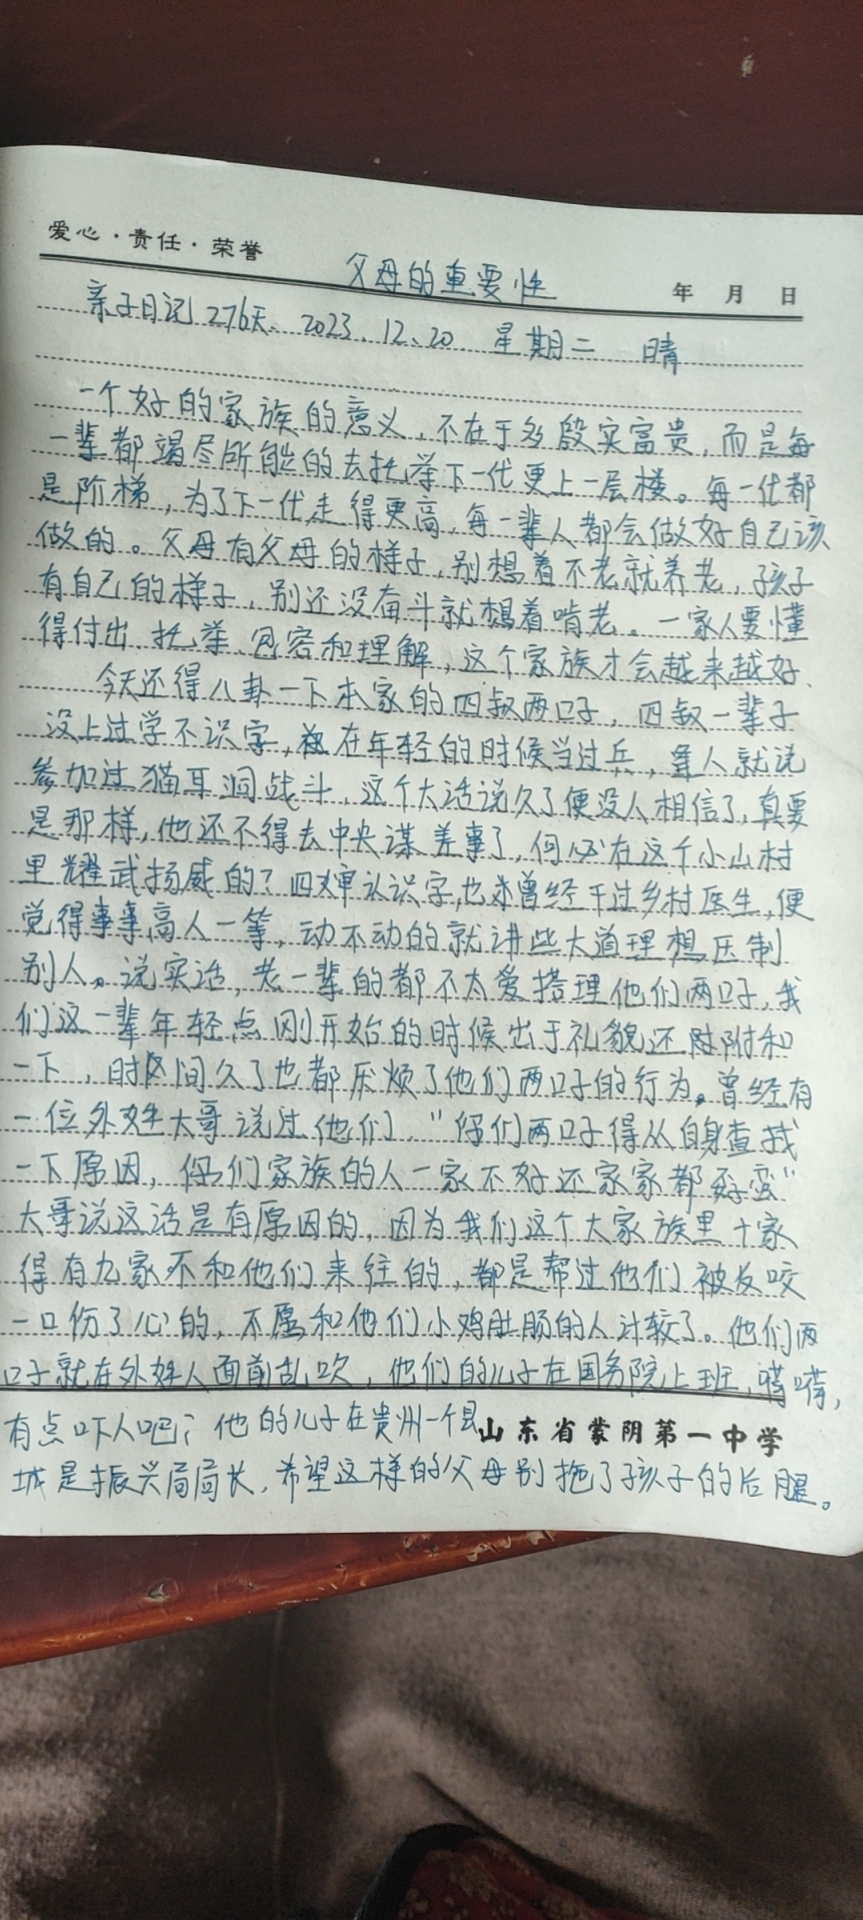 爱心·责任·荣誉
父母的重要性
年 月 日
亲子日记276天、2023、12、20 星期二 晴
一个好的家族的意义,不在于多殷实富贵,而是每
一辈都竭尽所能的去托举下一代更上一层楼。每一代都
是阶梯,为了下一代走得更高,每一辈人都会做好自己该
做的。父母有父母的样子,别想着不老就养老,孩子
有自己的样子,别还没奋斗就想着啃老。一家人要懂
得付出、托举、包容和理解,这个家族才会越来越好、
今天还得八卦一下本家的四叔两口子,四叔一辈子
没上过学不识字,在年轻的时候当过兵,逢人就说
参加过猫耳洞战斗,这个大话说久了便没人相信了,真要
是那样,他还不得去中央谋差事了,何必在这个小山村
里耀武扬威的?四婶认识字,也曾经干过乡村医生,便
觉得事事高人一等,动不动的就讲些大道理想压制
别人。说实话,老一辈的都不太爱搭理他们两口子,我
们这一辈年轻点刚开始的时候出于礼貌还附和
一下,时间久了也都厌烦了他们两口子的行为。曾经有
一位外姓大哥说过他们,“你们两口子得从自身查找
一下原因,你们家族的人一家不好还家家都歪蛮”
大哥说这话是有原因的,因为我们这个大家族里十家
得有九家不和他们来往的,都是帮过他们被反咬
一口伤了心的,不愿和他们小鸡肚肠的人计较了。他们两
口子就在外姓人面前乱吹,他们的儿子在国务院上班,嗬嗬,
有点吓人吧?他的儿子在贵州一个县
山东省蒙阴第一中学
城是振兴局局长,希望这样的父母别拖了孩子的后腿。